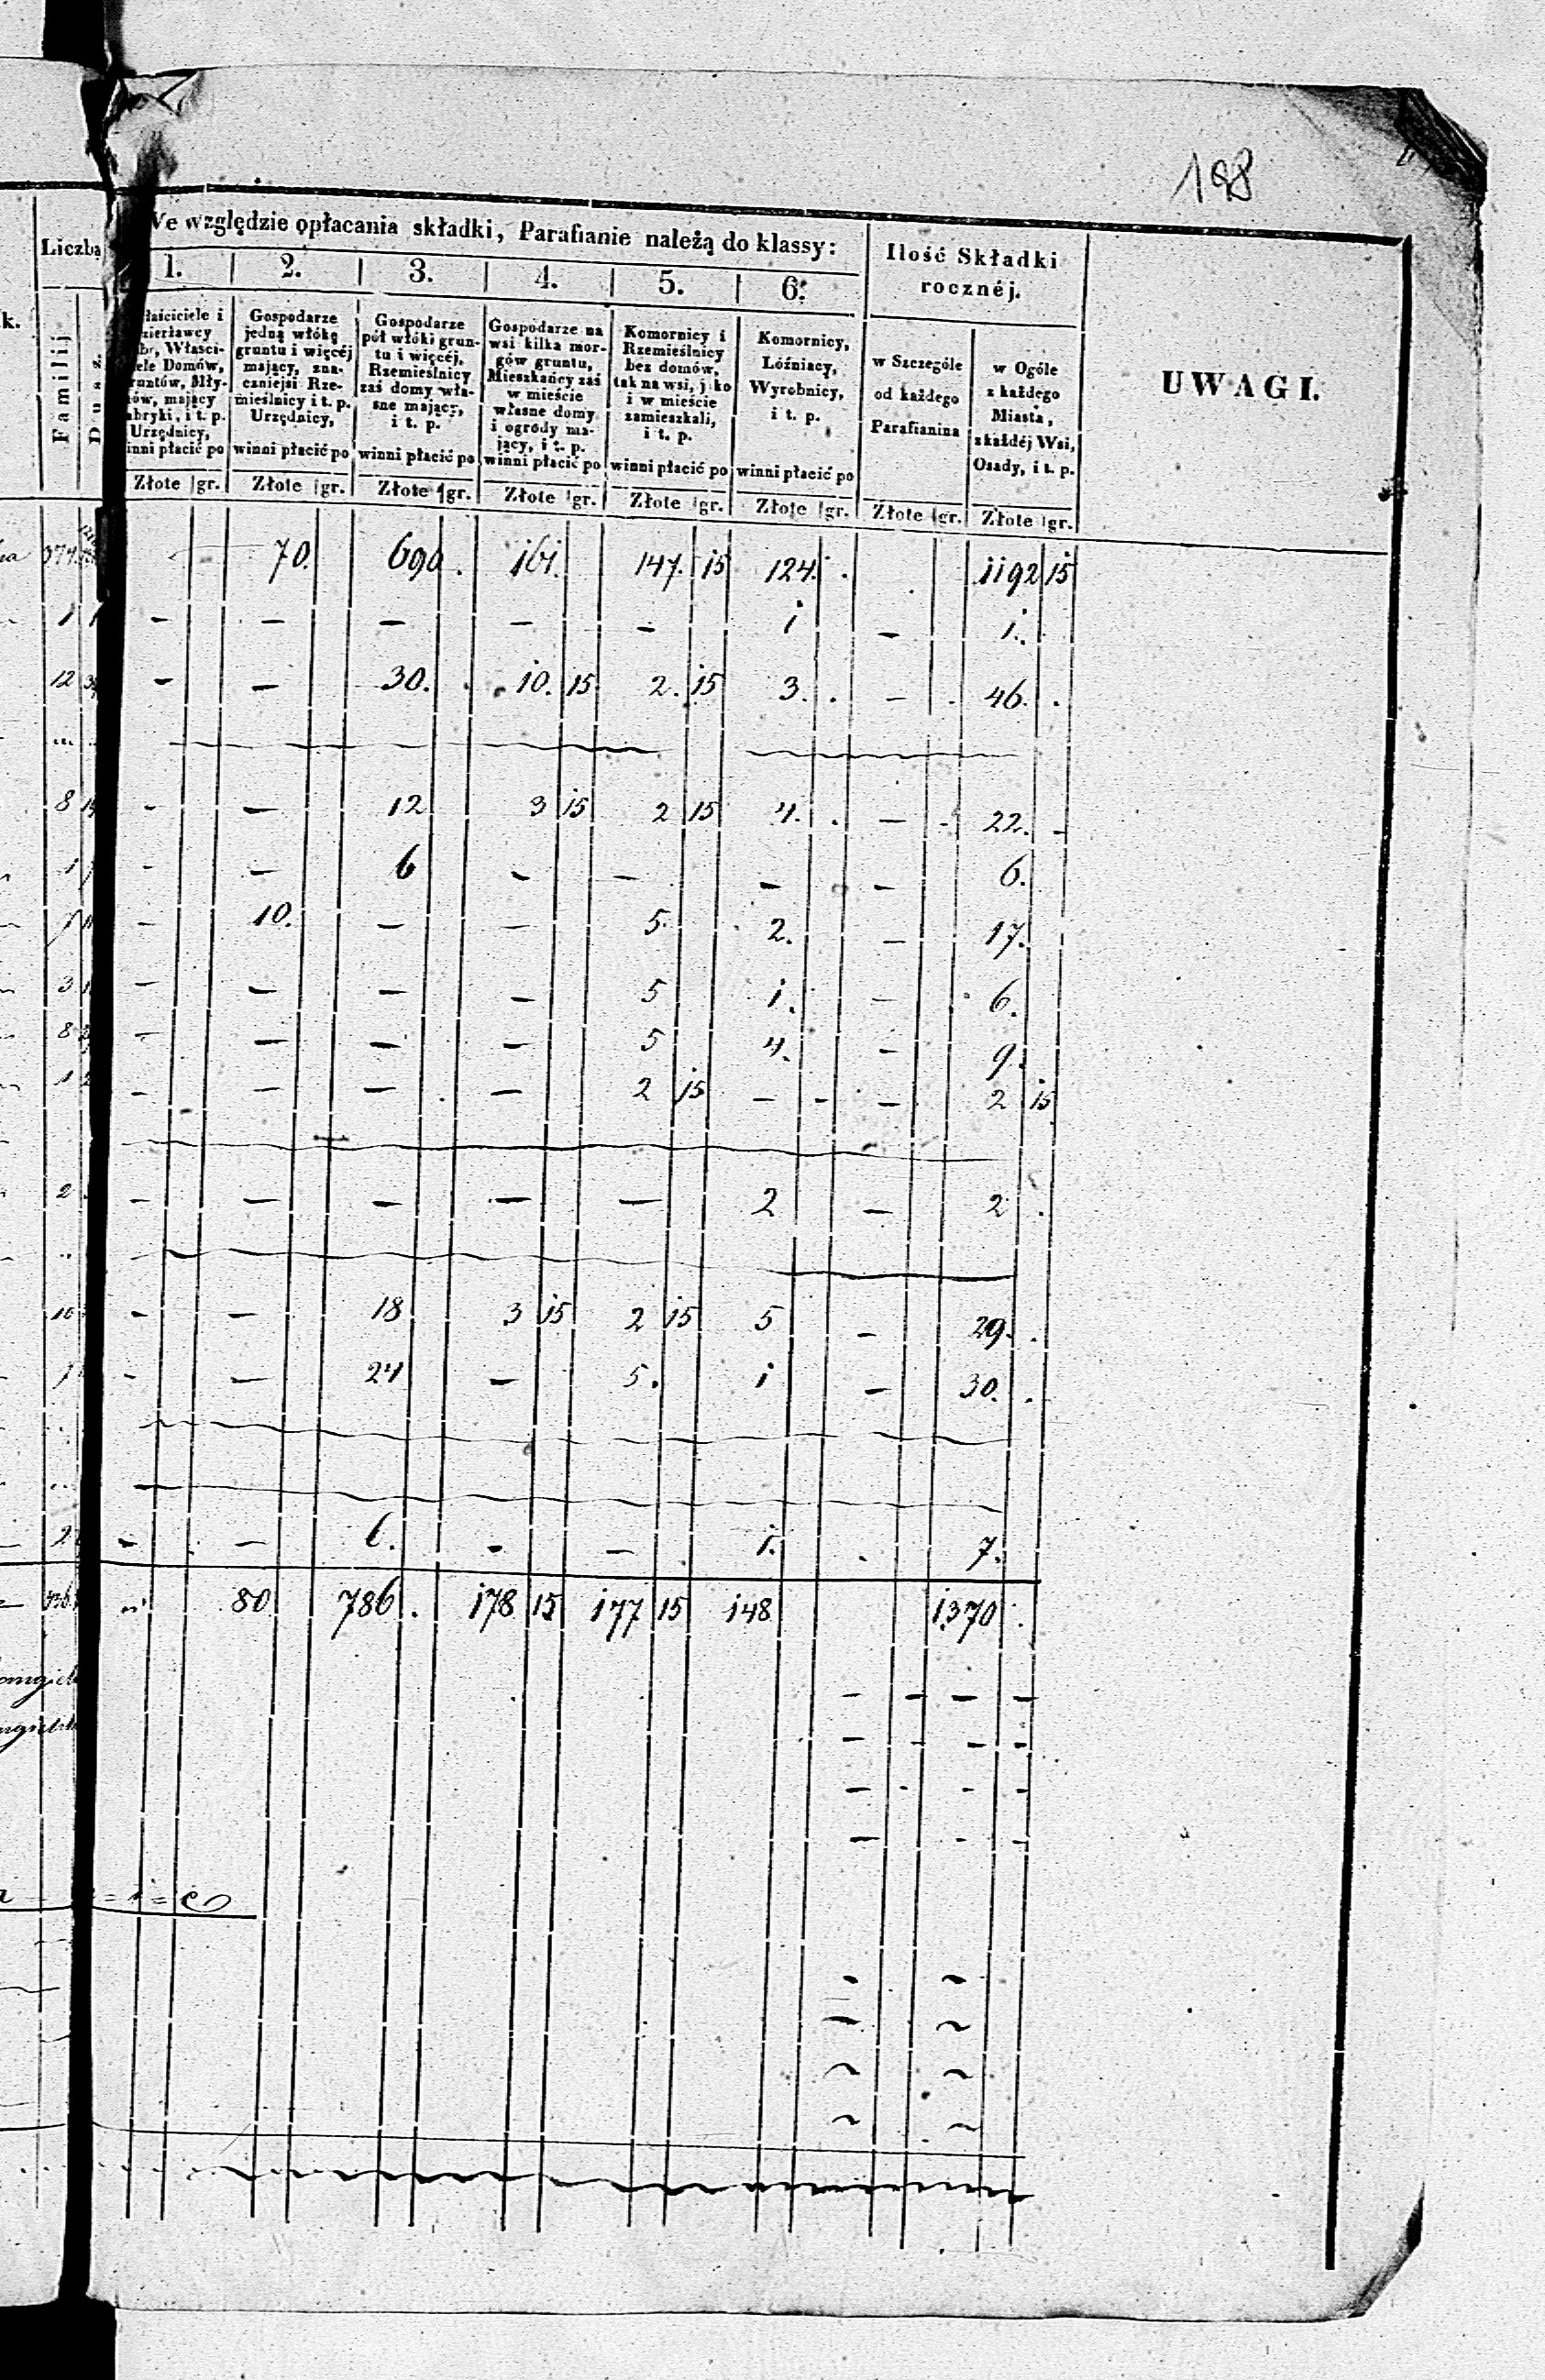 188
We względzie opłacania składki, Parafianie należą do klassy:
Liczba
Ilość Składki
rocznéj.
UWAGI.
1. 2. 3. 4. 5. 6.
k.
Familij
Dusz.
łaściciele i
zierżawcy
óbr, Właści-
iele Domów,
runtów, Mły-
nów, mający
abryki, i t. p.
Urzędnicy,
inni płacić po
Gospodarze
jedną włókę
gruntu i więcéj
mający, zna-
czniejsi Rze-
mieślnicy i t. p.
Urzędnicy,
winni płacić po
Gospodarze
pół włóki grun-
tu i więcéj,
Rzemieślnicy
zaś domy wła-
sne mający,
i t. p.
winni płacić po
Gospodarze na
wsi kilka mor-
gów gruntu,
Mieszkańcy zaś
w mieście
własne domy
i ogrody ma-
jący, i t. p.
winni płacić po
Komornicy i
Rzemieślnicy
bez domów,
tak na wsi, jako
i w mieście
zamieszkali,
i t. p.
winni płacić po
Komornicy,
Lóźniacy,
Wyrobnicy,
i t. p.
winni płacić po
w Szczególe
od każdego
Parafianina
w Ogóle
z każdego
Miasta,
z każdéj Wsi,
Osady, i t. p.
Złote gr. Złote gr. Złote gr. Złote gr. Złote gr. Złote gr. Złote gr. Złote gr.
70. 690. 161. 147. 15 124. 1192 15
1 – – – – – 1 – 1.
12 – – 30. 10. 15 2. 15 3. – 46.
8 – – 12 3 15 2 15 4. – 22. –
1 – – 6 – – – – 6.
– 10. – – 5. 2. – 17.
3 – – – – 5 1. – 6.
8 – – – – 5 4. – 9.
1 – – – – 2 15 – – – 2 15
2 – – – – – 2 – 2
10 – – 18 3 15 2 15 5 – 29.
1 – – 24 – 5. 1 – 30.
2 – – 6. – – 1. 7.
80 786. 178 15 177 15 148 1370